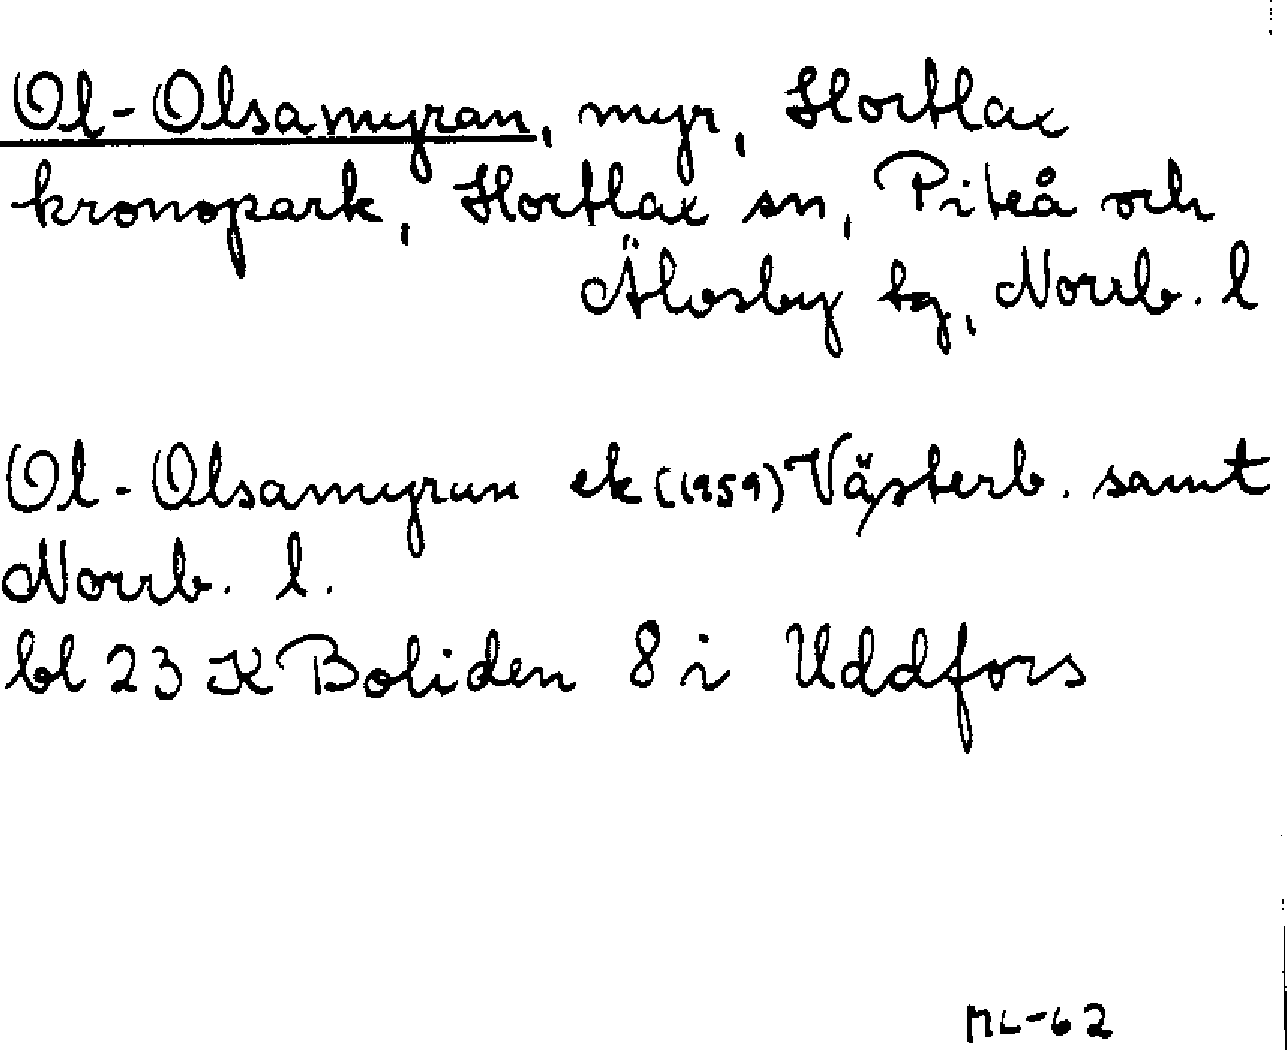 Ol-Olsamyran, myr, Hortlax
kronopark, Hortlax sn, Piteå och
Älvsby tg, Norrb. l
Ol-Olsamyran ek (1959) Västerb. samt
Norrb. l.
bl 23 K Boliden 8 i Uddfors
ML-62